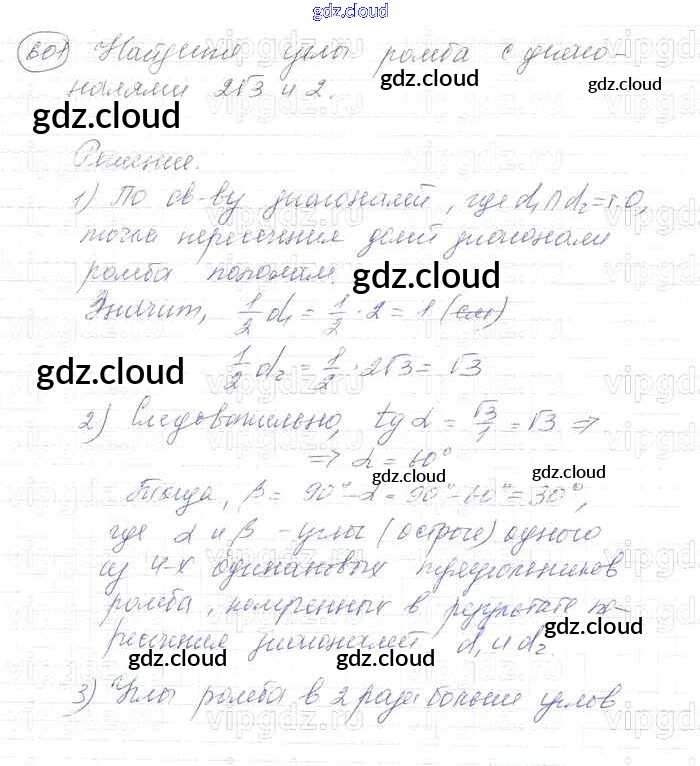 gdz.cloud
601 Найдите углы ромба с диаго-
налями 2√3 и 2.
gdz.cloud
gdz.cloud
Решение.
1) По св-ву диагоналей, где d₁∩d₂=т.O,
точка пересечения делит диагонали
ромба пополам.
gdz.cloud
Значит, 1/2 d₁ = 1/2 · 2 = 1 (см)
1/2 d₂ = 1/2 · 2√3 = √3
gdz.cloud
2) Следовательно, tg α = √3/1 = √3 ⇒
⇒ α = 60°
gdz.cloud
gdz.cloud
Тогда, β = 90° - α = 90° - 60° = 30°,
где α и β - углы (острые) одного
из 4-х одинаковых треугольников
ромба, полученных в результате пе-
ресечения диагоналей d₁ и d₂.
gdz.cloud
gdz.cloud
gdz.cloud
3) Углы ромба в 2 раза больше углов
vipgdz.ru